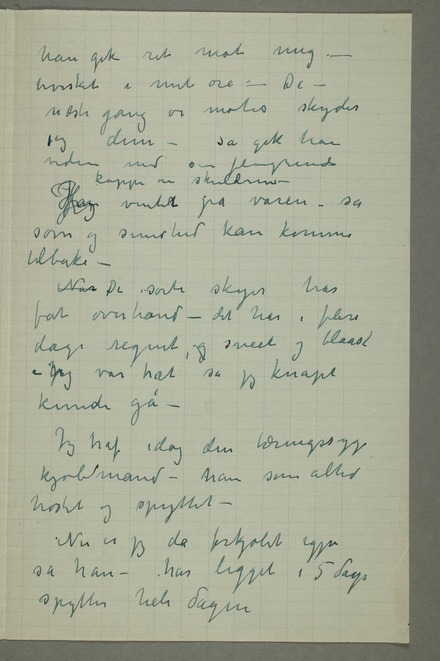 han gik ret mot mig –
hvisket i mit øre – De –
næste gang vi møtes skyder
jeg dem – sa gik han
videre med sin flagrende
kappe om skuldrene
Jeg ventet på våren – sa
som og sundhed kan komme
tilbake –
Når De sorte skyer har
fåt overhånd – det har i flere
dage regnet, og sneet og blaast
– jeg var træt sa jeg knapt
kunde gå –
Jeg traf idag den tæringssyge
kjolemand – han som altid
hostet og spyttet –
Nu er jeg da forkjølet igjen
sa han – har ligget i 5 dage
spytter hele dagen